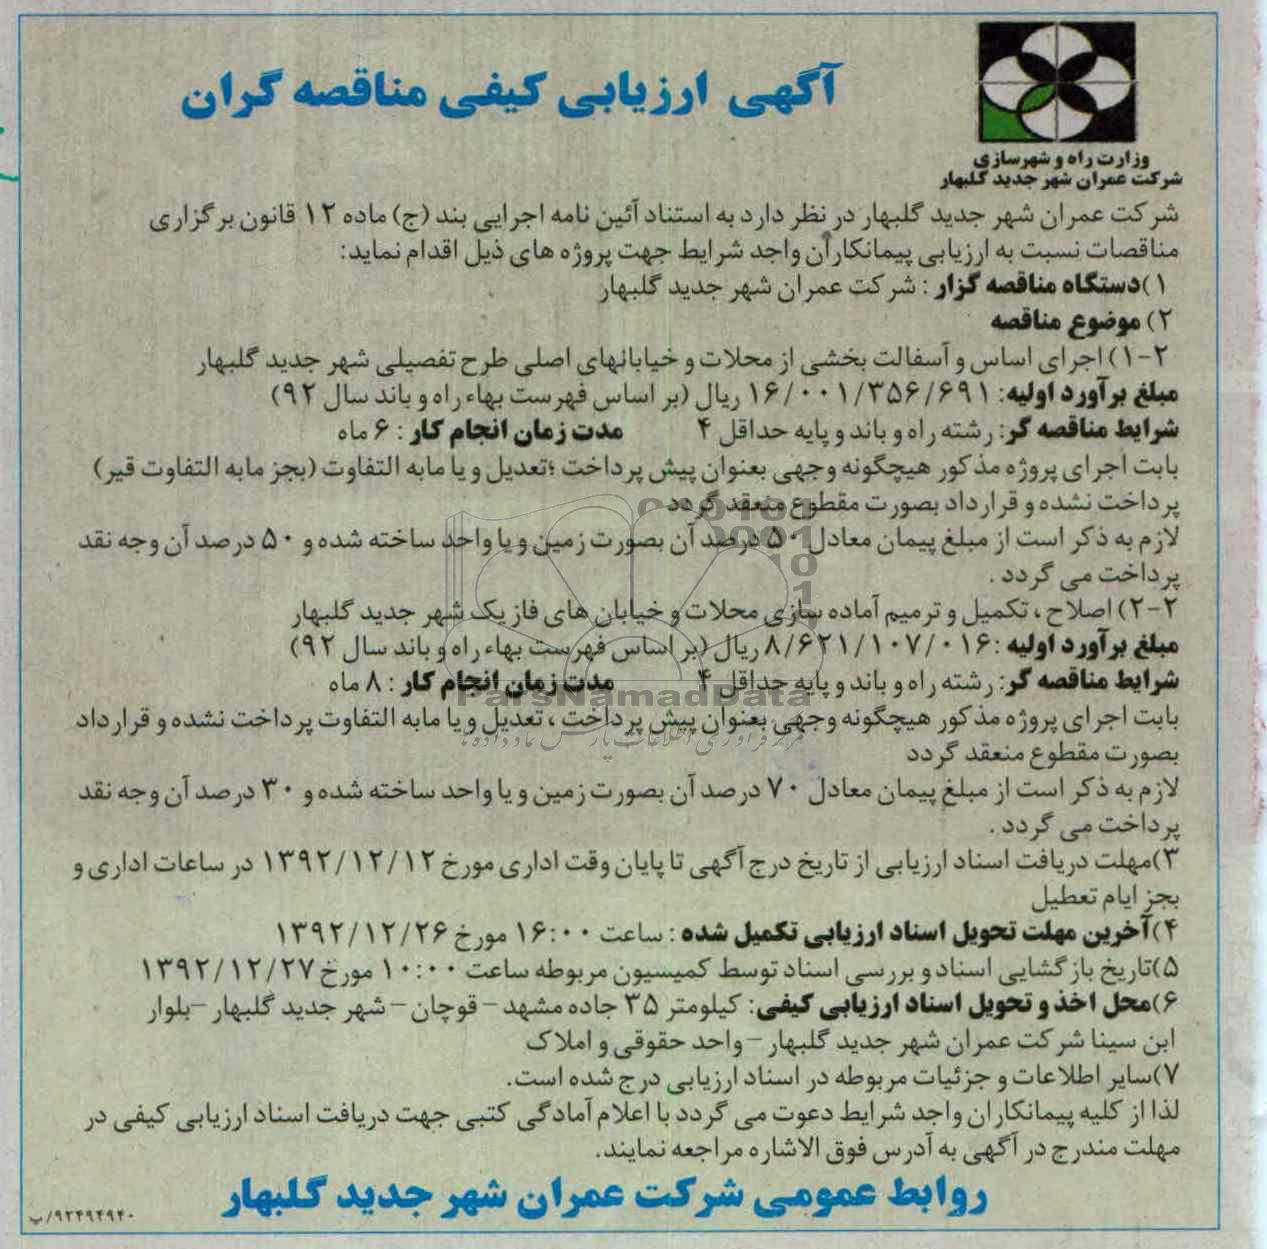 آگهی ارزیابی کیفی مناقصه گران
وزارت راه و شهرسازی
شرکت عمران شهر جدید گلبهار
شرکت عمران شهر جدید گلبهار در نظر دارد به استناد آئین نامه اجرایی بند (ج) ماده ۱۲ قانون برگزاری
مناقصات نسبت به ارزیابی پیمانکاران واجد شرایط جهت پروژه های ذیل اقدام نماید:
۱)دستگاه مناقصه گزار : شرکت عمران شهر جدید گلبهار
۲) موضوع مناقصه
۲-۱) اجرای اساس و آسفالت بخشی از محلات و خیابانهای اصلی طرح تفصیلی شهر جدید گلبهار
مبلغ برآورد اولیه: ۱۶/۰۰۱/۳۵۶/۶۹۱ ریال (بر اساس فهرست بهاء راه و باند سال ۹۲)
شرایط مناقصه گر: رشته راه و باند و پایه حداقل ۴ مدت زمان انجام کار : ۶ ماه
بابت اجرای پروژه مذکور هیچگونه وجهی بعنوان پیش پرداخت ؛تعدیل و یا مابه التفاوت (بجز مابه التفاوت قیر)
پرداخت نشده و قرارداد بصورت مقطوع منعقد گردد
لازم به ذکر است از مبلغ پیمان معادل ۵۰ درصد آن بصورت زمین و یا واحد ساخته شده و ۵۰ درصد آن وجه نقد
پرداخت می گردد .
۲-۲) اصلاح ، تکمیل و ترمیم آماده سازی محلات و خیابان های فاز یک شهر جدید گلبهار
مبلغ برآورد اولیه :۸/۶۲۱/۱۰۷/۰۱۶ ریال (بر اساس فهرست بهاء راه و باند سال ۹۲)
شرایط مناقصه گر: رشته راه و باند و پایه حداقل ۴ مدت زمان انجام کار : ۸ ماه
ParsNamadData
بابت اجرای پروژه مذکور هیچگونه وجهی بعنوان پیش پرداخت ، تعدیل و یا مابه التفاوت پرداخت نشده و قرارداد
بصورت مقطوع منعقد گردد
لازم به ذکر است از مبلغ پیمان معادل ۷۰ درصد آن بصورت زمین و یا واحد ساخته شده و ۳۰ درصد آن وجه نقد
پرداخت می گردد .
۳)مهلت دریافت اسناد ارزیابی از تاریخ درج آگهی تا پایان وقت اداری مورخ ۱۳۹۲/۱۲/۱۲ در ساعات اداری و
بجز ایام تعطیل
۴)آخرین مهلت تحویل اسناد ارزیابی تکمیل شده : ساعت ۱۶:۰۰ مورخ ۱۳۹۲/۱۲/۲۶
۵)تاریخ بازگشایی اسناد و بررسی اسناد توسط کمیسیون مربوطه ساعت ۱۰:۰۰ مورخ ۱۳۹۲/۱۲/۲۷
۶)محل اخذ و تحویل اسناد ارزیابی کیفی: کیلومتر ۳۵ جاده مشهد - قوچان - شهر جدید گلبهار -بلوار
ابن سینا شرکت عمران شهر جدید گلبهار - واحد حقوقی و املاک
۷)سایر اطلاعات و جزئیات مربوطه در اسناد ارزیابی درج شده است.
لذا از کلیه پیمانکاران واجد شرایط دعوت می گردد با اعلام آمادگی کتبی جهت دریافت اسناد ارزیابی کیفی در
مهلت مندرج در آگهی به آدرس فوق الاشاره مراجعه نمایند.
روابط عمومی شرکت عمران شهر جدید گلبهار
۹۲۴۹۴۹۴۰/پ